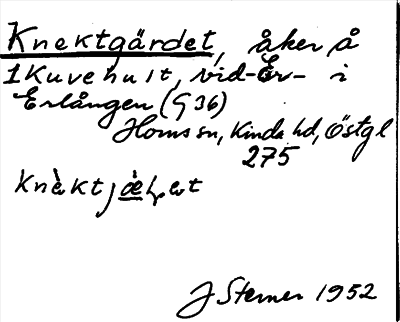 Knektgärdet, åker å
1 Kuvehult, vid i
Erlången (G 36)
Horns sn, Kinda hd, Östgl
275
J Sterner 1952